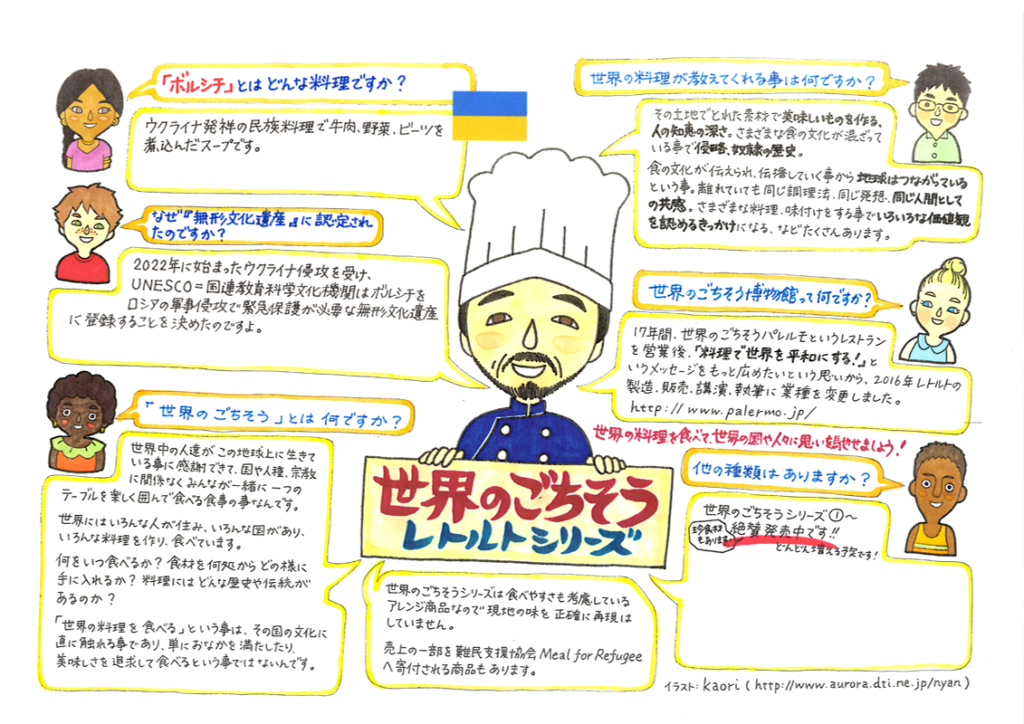 「ボルシチ」とは どんな料理ですか？
ウクライナ発祥の民族料理で牛肉、野菜、ビーツを
煮込んだスープです。
なぜ『無形文化遺産』に認定され
たのですか？
2022年に始まったウクライナ侵攻を受け、
UNESCO＝国連教育科学文化機関はボルシチを
ロシアの軍事侵攻で緊急保護が必要な無形文化遺産
に登録することを決めたのですよ。
「世界の ごちそう」とは 何ですか？
世界中の人達が この地球上に生きて
いる事に感謝できて、国や人種、宗教
に関係なく みんなが一緒に 一つの
テーブルを楽しく囲んで食べる食事の事なんです。
世界には いろんな人が住み、いろんな国があり、
いろんな料理を作り、食べています。
何をいつ食べるか？ 食材を何処から どの様に
手に入れるか？ 料理には どんな歴史や伝統が
あるのか？
「世界の料理を 食べる」という事は、その国の文化に
直に触れる事であり、単におなかを満たしたり、
美味しさを追求して食べるという事ではないんです。
世界のごちそう
レトルトシリーズ
世界のごちそうシリーズは 食べやすさも考慮している
アレンジ商品なので 現地の味を 正確に再現は
していません。
売上の一部を 難民支援協会 Meal for Refugee
へ寄付される商品も あります。
世界の料理が教えてくれる事は何ですか？
その土地でとれた素材で美味しいものを作る、
人の知恵の深さ。さまざまな食の文化が混ざって
いる事で侵略、奴隷の歴史。
食の文化が伝えられ、伝播していく事から 地球はつながっている
という事。離れていても同じ調理法、同じ発想、同じ人間として
の共感。さまざまな料理、味付けをする事でいろいろな価値観
を認めるきっかけになる、などたくさんあります。
世界のごちそう博物館って何ですか？
17年間、世界のごちそうパレルモというレストラン
を営業後、「料理で世界を平和にする！」と
いうメッセージをもっと広めたいという思いから、2016年レトルトの
製造、販売、講演、執筆に 業種を変更しました。
http://www.palermo.jp/
世界の料理を食べて、世界の国や人々に思いを馳せましょう！
他の種類は ありますか？
世界のごちそうシリーズ①〜
珍食材
もあります
絶賛 発売中です!!
どんどん増える予定です！
イラスト：kaori ( http://www.aurora.dti.ne.jp/nyan )